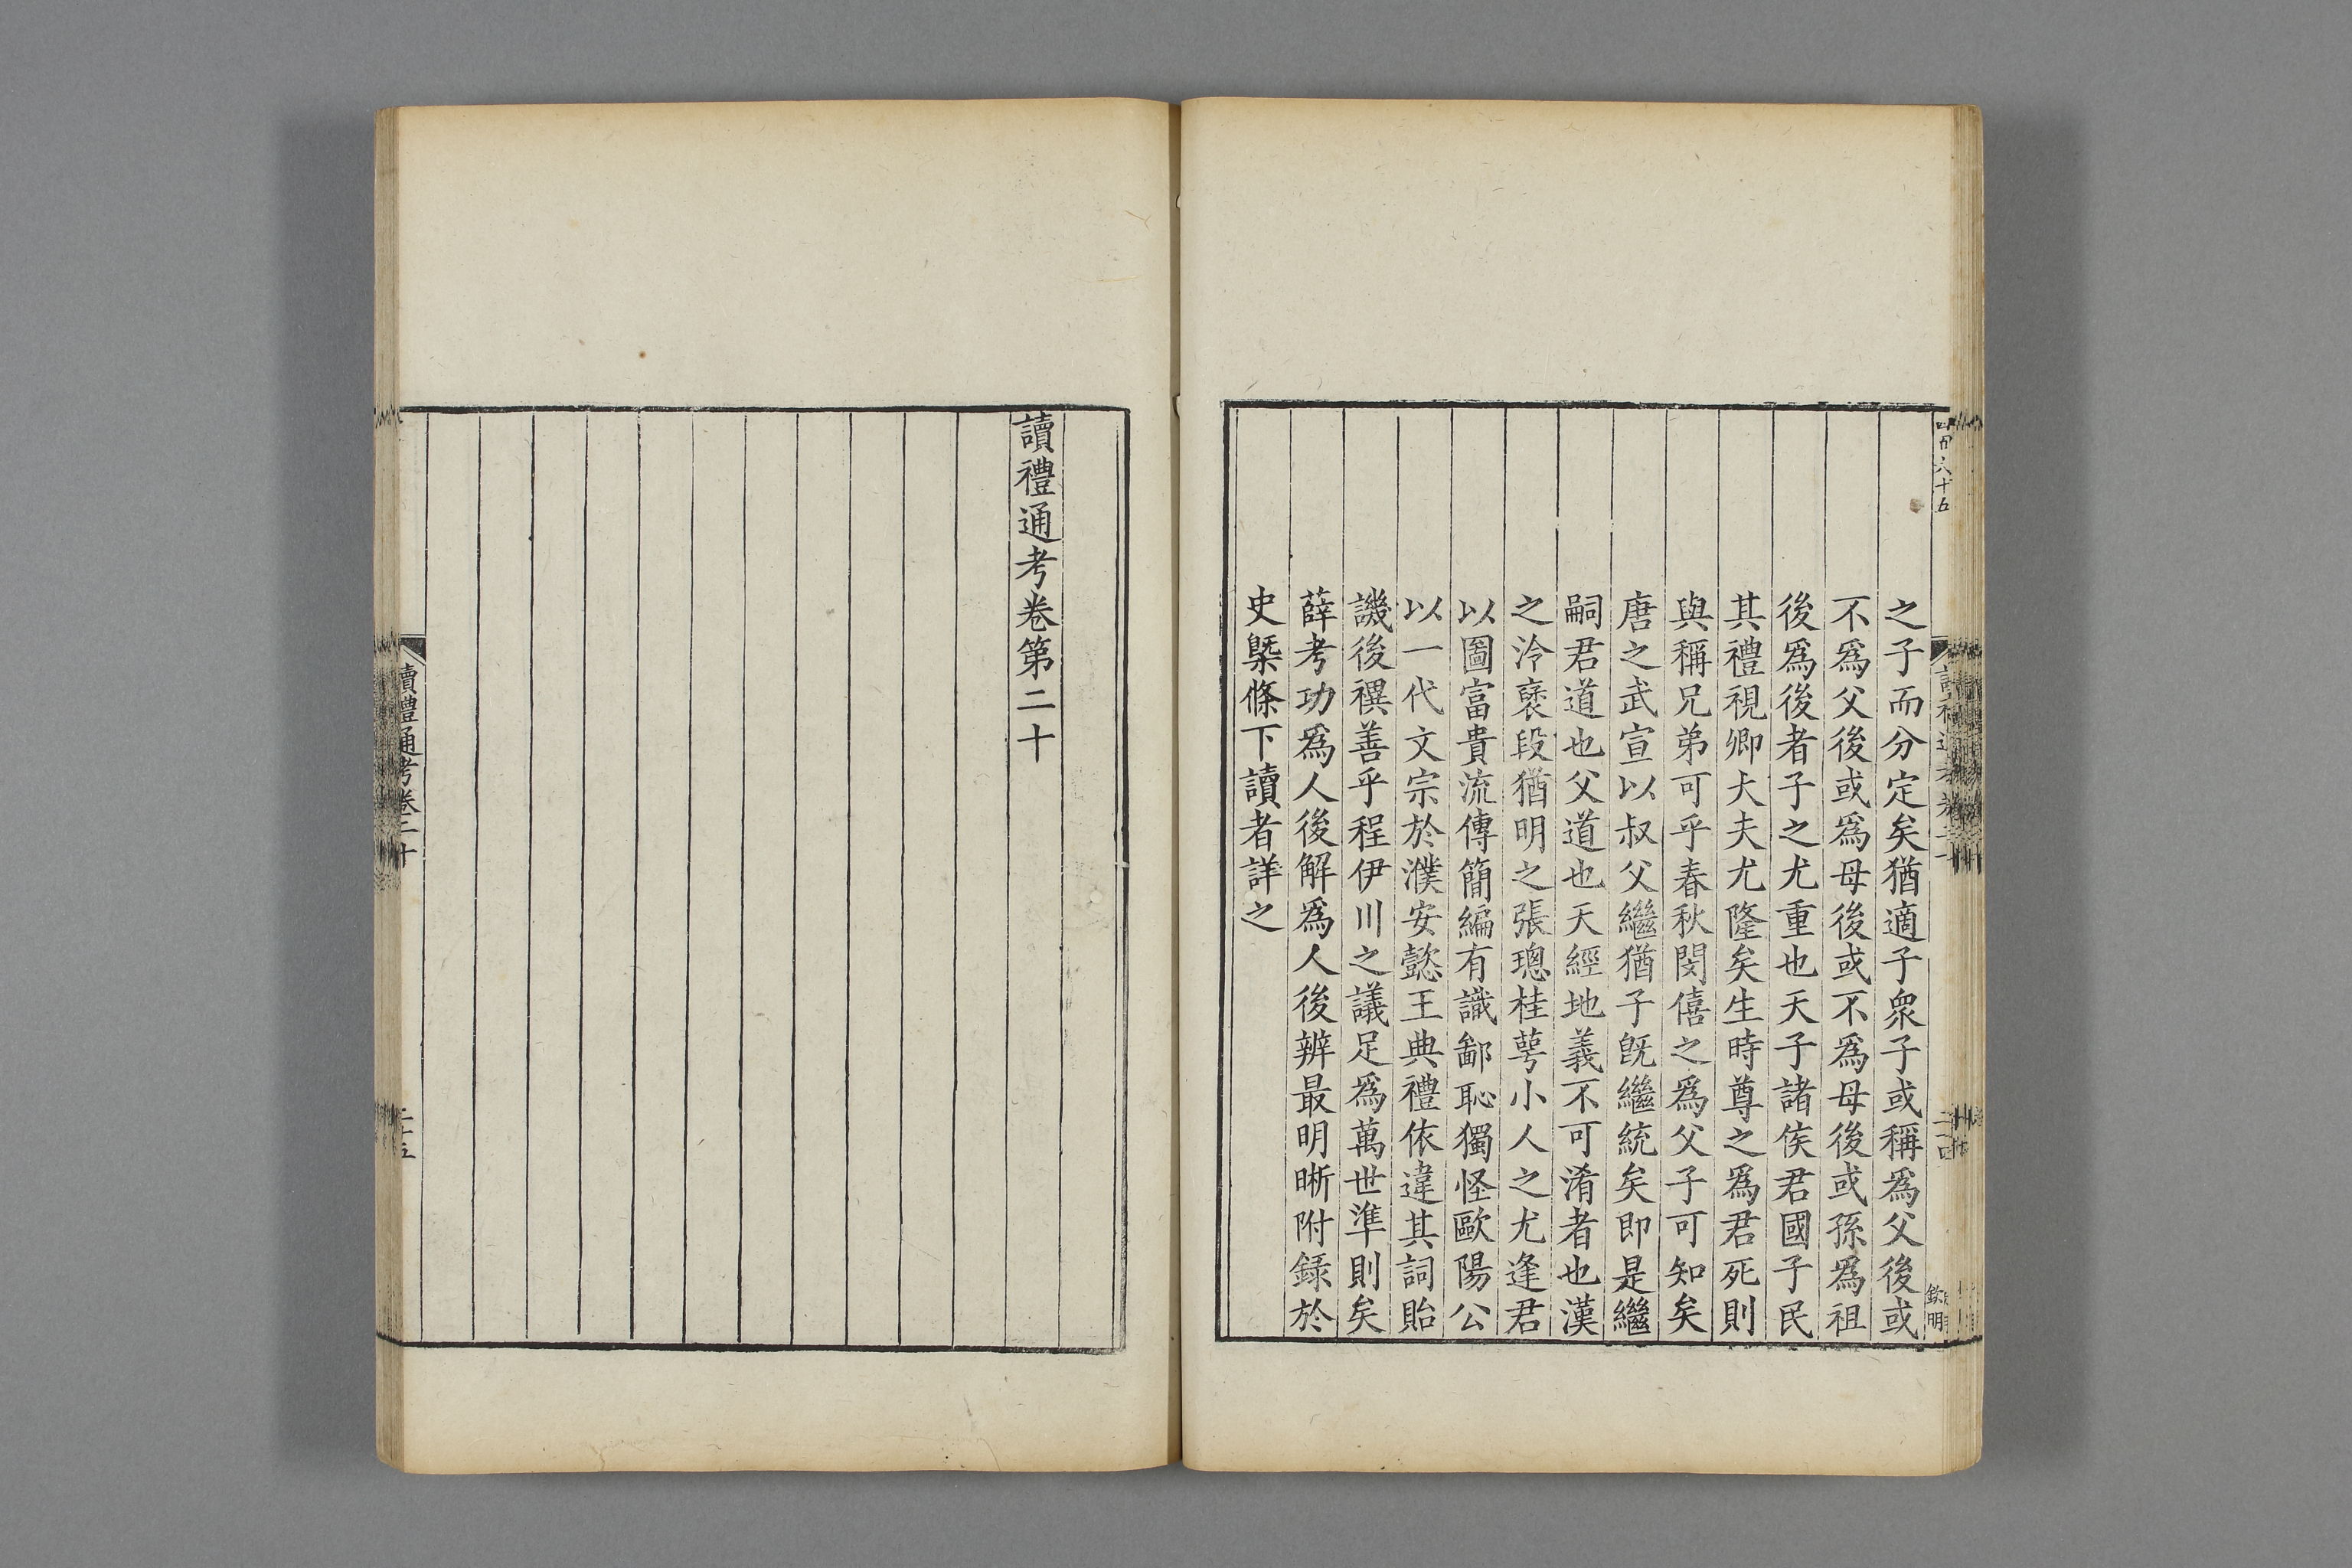 之子而分定矣猶適子衆子或稱爲父後或
不爲父後或爲母後或不爲母後或孫爲祖
後爲後者子之尤重也天子諸侯君國子民
其禮視卿大夫尤隆矣生時尊之爲君死則
與稱兄弟可乎春秋閔僖之爲父子可知矣
唐之武宣以叔父繼猶子旣繼統矣即是繼
嗣君道也父道也天經地義不可淆者也漢
之泠襃段猶明之張璁桂萼小人之尤逢君
以圖富貴流傳簡編有識鄙恥獨怪歐陽公
以一代文宗於濮安懿王典禮依違其詞貽
譏後禩善乎程伊川之議足爲萬世準則矣
薛考功爲人後解爲人後辨最明晰附錄於
史槩條下讀者詳之
讀禮通考卷第二十
讀禮通考卷二十
二十五